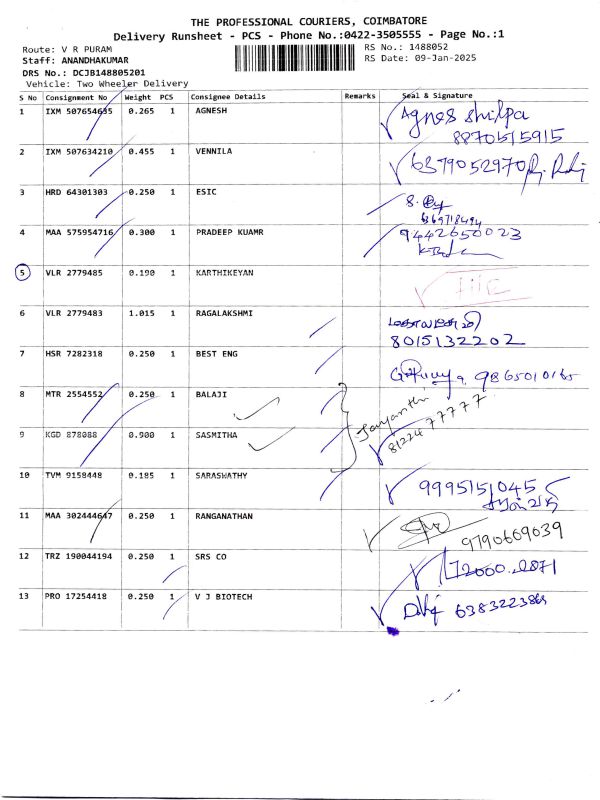 THE PROFESSIONAL COURIERS, COIMBATORE
Delivery Runsheet - PCS - Phone No.:0422-3505555 - Page No.:1
Route: V R PURAM
RS No.: 1488052
Staff: ANANDHAKUMAR
RS Date: 09-Jan-2025
DRS No.: DCJB148805201
Vehicle: Two Wheeler Delivery
S No Consignment No Weight PCS Consignee Details Remarks Seal & Signature
1 IXM 507654635 0.265 1 AGNESH Agnes Shilpa
8870515915
2 IXM 507634210 0.455 1 VENNILA 6379052970
3 HRD 64301303 0.250 1 ESIC
4 MAA 575954716 0.300 1 PRADEEP KUAMR 9442650023
5 VLR 2779485 0.190 1 KARTHIKEYAN
6 VLR 2779483 1.015 1 RAGALAKSHMI
8015132202
7 HSR 7282318 0.250 1 BEST ENG 9865010165
8 MTR 2554552 0.250 1 BALAJI Jayanthi
9 KGD 878088 0.900 1 SASMITHA 8122477777
10 TVM 9158448 0.185 1 SARASWATHY 9995151045
11 MAA 302444647 0.250 1 RANGANATHAN
9790609039
12 TRZ 190044194 0.250 1 SRS CO
13 PRO 17254418 0.250 1 V J BIOTECH